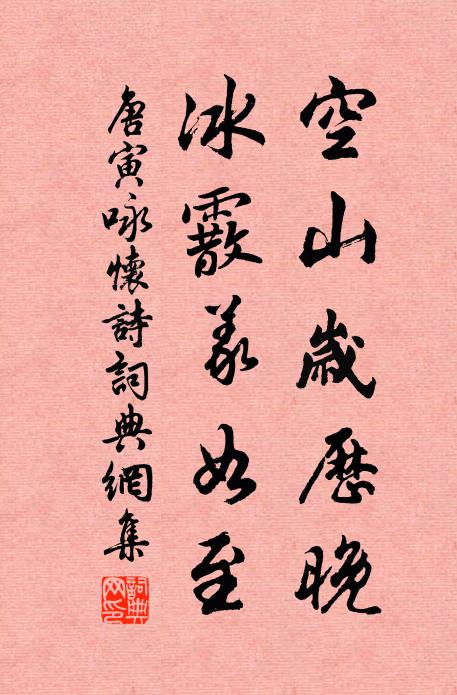 空山歲歷晚
冰霰如至
唐寅咏懷詩詞典網集
詞典
网印